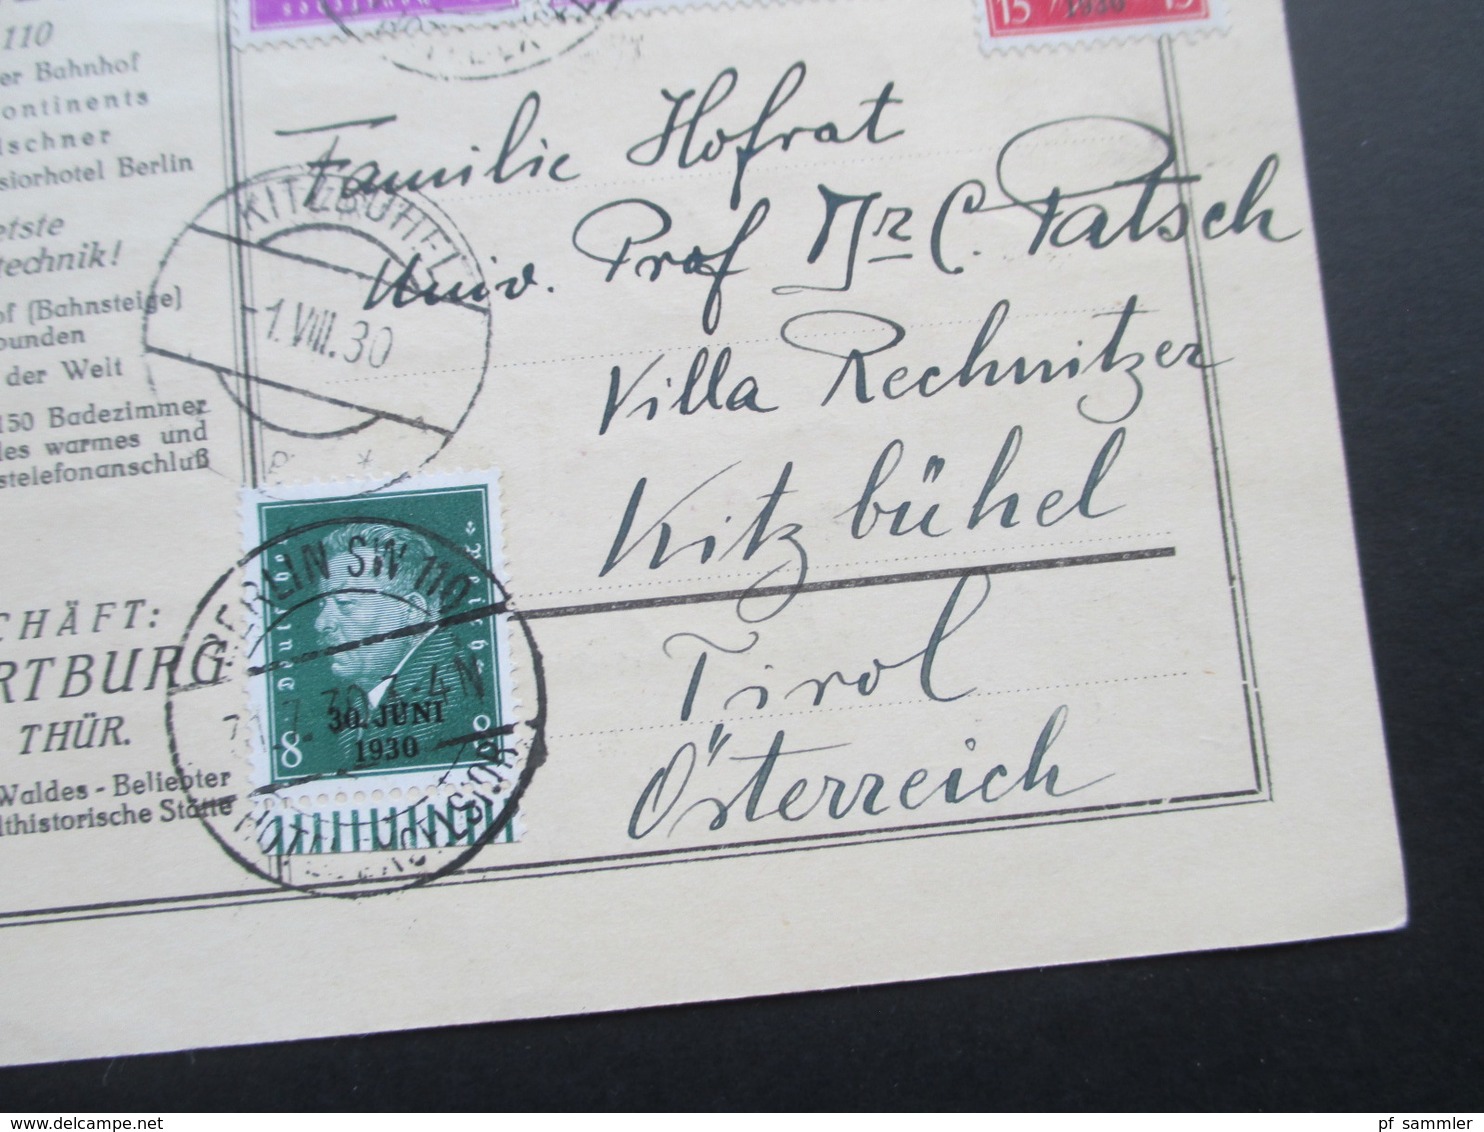 110
er Bahnhof
ontinents
lschner
siorhotel Berlin
etste
technik!
of (Bahnsteige)
bunden
der Welt
150 Badezimmer
les warmes und
stelefonanschluß
CHÄFT:
RTBURG
THÜR.
Waldes - Beliebter
lthistorische Stätte
15 1930 15
KITZBÜHEL
-1.VIII.30
Familie Hofrat
Univ. Prof Dr C. Patsch
Villa Rechnitzer
Kitzbühel
Tirol
Österreich
BERLIN SW 110
Deutsches Reich
30. JUNI
1930
8 8
delcampe.net
pf_sammler